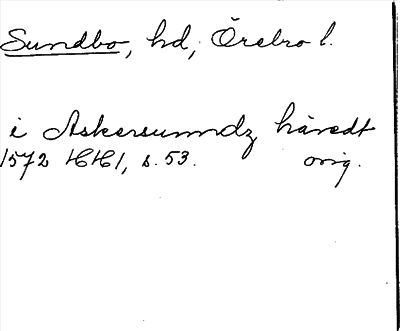 Sundbo, hd, Örebro l.
i Askersumdz häredt
1572 HH 1, s. 53. orig.